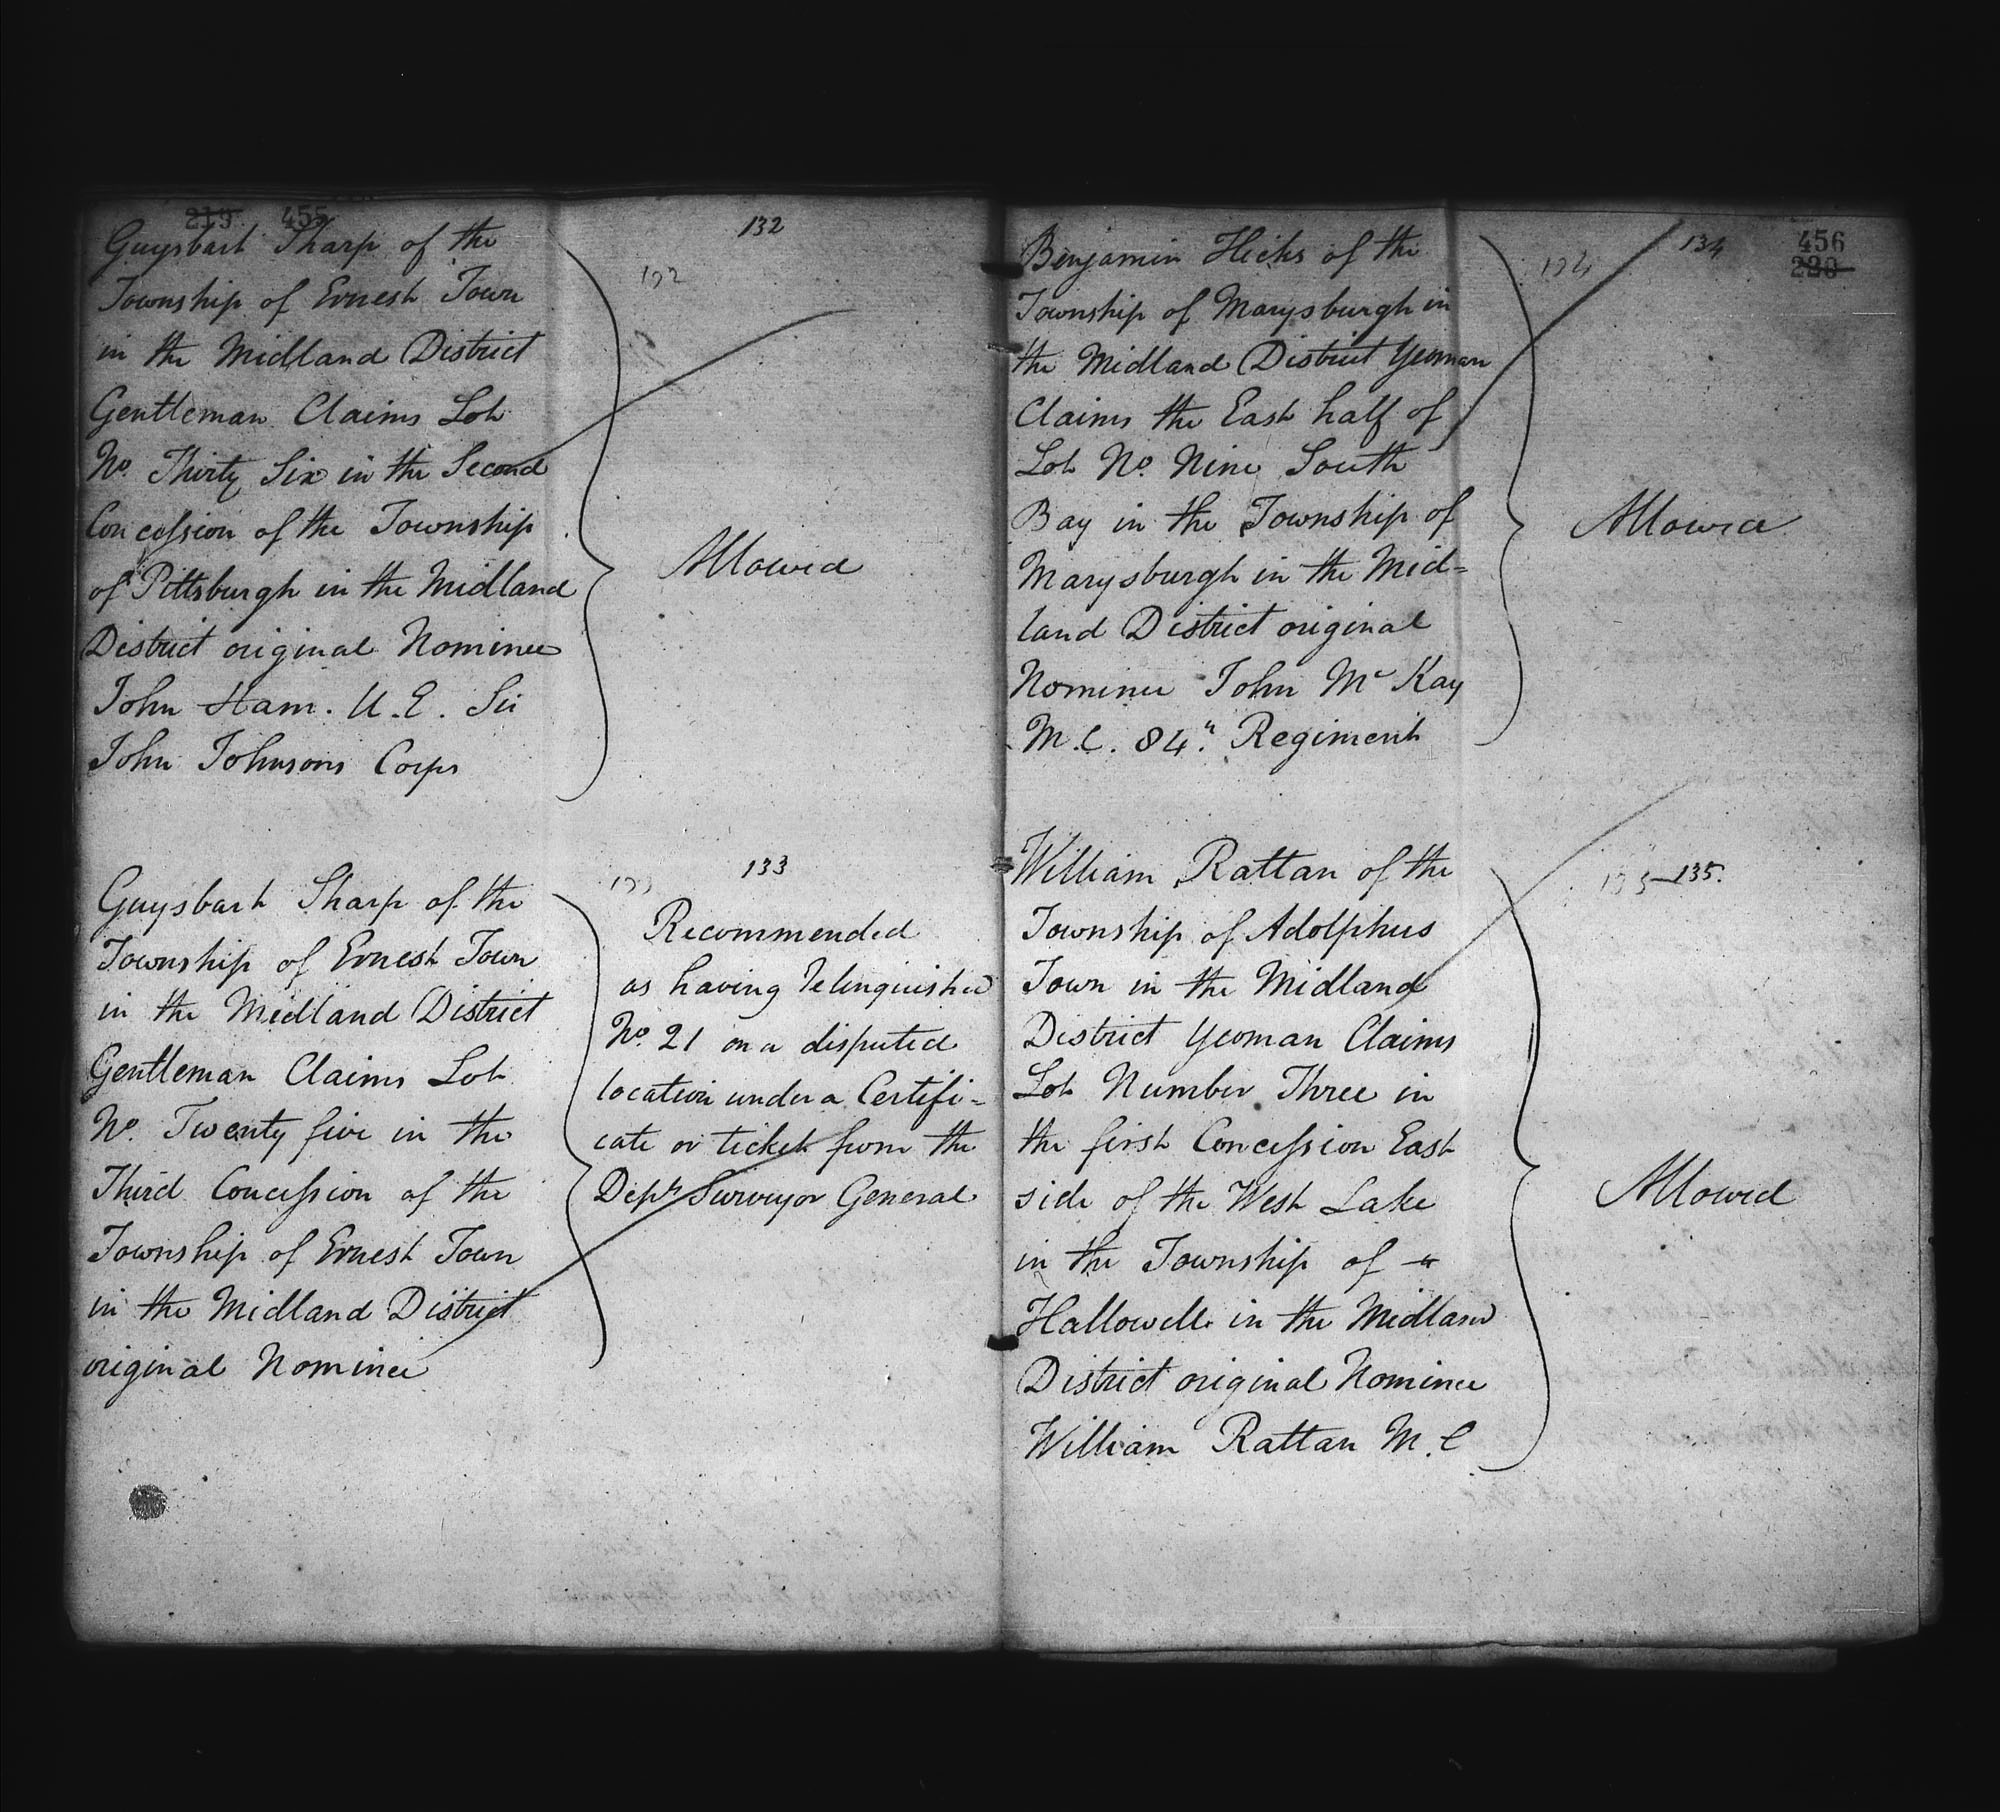 219 455
132
132
Guysbart Sharp of the
Township of Ernest Town
in the Midland District
Gentleman Claims Lot
No. Thirty Six in the Second
Concession of the Township
of Pittsburgh in the Midland
District original Nominee
John Ham. U.E. Sir
John Johnsons Corps
Allowed
133
133
Guysbart Sharp of the
Township of Ernest Town
in the Midland District
Gentleman Claims Lot
No. Twenty five in the
Third Concession of the
Township of Ernest Town
in the Midland District
original Nominee
Recommended
as having relinquished
No. 21 on a disputed
location under a Certifi-
cate or ticket from the
Depy Surveyor General
134
134
456
220
Benjamin Hicks of the
Township of Marysburgh in
the Midland District Yeoman
Claims the East half of
Lot No. Nine South
Bay in the Township of
Marysburgh in the Mid=
land District original
Nominee John Mc Kay
M.C. 84" Regiment
Allowed
135
135.
William Rattan of the
Township of Adolphus
Town in the Midland
District Yeoman Claims
Lot Number Three in
the first Concession East
side of the West Lake
in the Township of
Hallowell in the Midland
District original Nominee
William Rattan M.C
Allowed